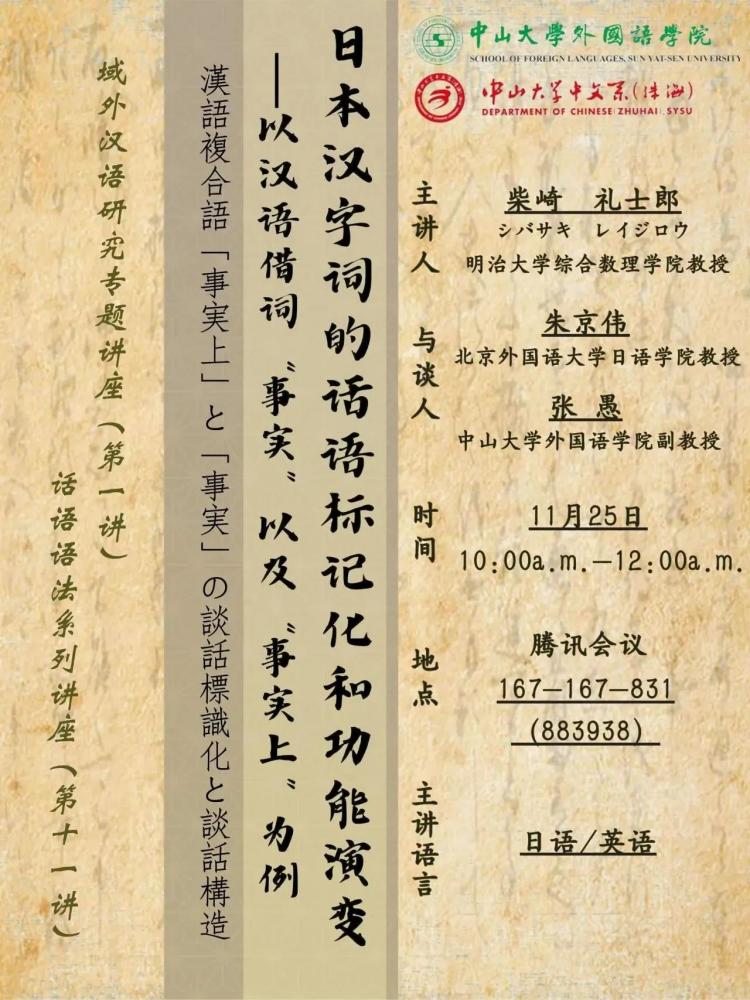 中山大學外國語學院
SCHOOL OF FOREIGN LANGUAGES, SUN YAT-SEN UNIVERSITY
中山大学中文系(珠海)
DEPARTMENT OF CHINESE(ZHUHAI), SYSU
日本汉字词的话语标记化和功能演变
——以汉语借词“事实”以及“事实上”为例
漢語複合語「事実上」と「事実」の談話標識化と談話構造
域外汉语研究专题讲座(第一讲)
话语语法系列讲座(第十一讲)
主讲人
柴崎 礼士郎
シバサキ レイジロウ
明治大学综合数理学院教授
与谈人
朱京伟
北京外国语大学日语学院教授
张 愚
中山大学外国语学院副教授
时间
11月25日
10:00a.m.—12:00a.m.
地点
腾讯会议
167—167—831
(883938)
主讲语言
日语/英语